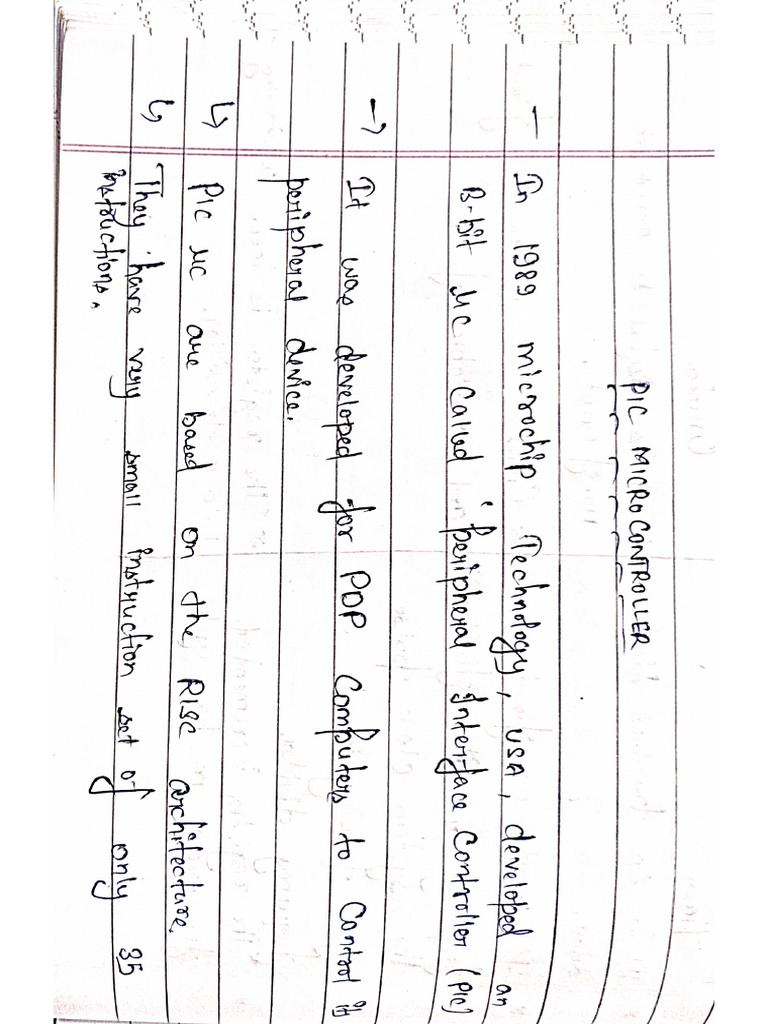 PIC MICROCONTROLLER
— In 1989 microchip Technology, USA, developed an
8-bit μc Called 'peripheral Interface Controller (PIC)
→ It was developed for PDP Computers to Control it
peripheral device.
↳ PIC μc are based on the RISC architecture.
↳ They have very small instruction set of only 35
instructions.